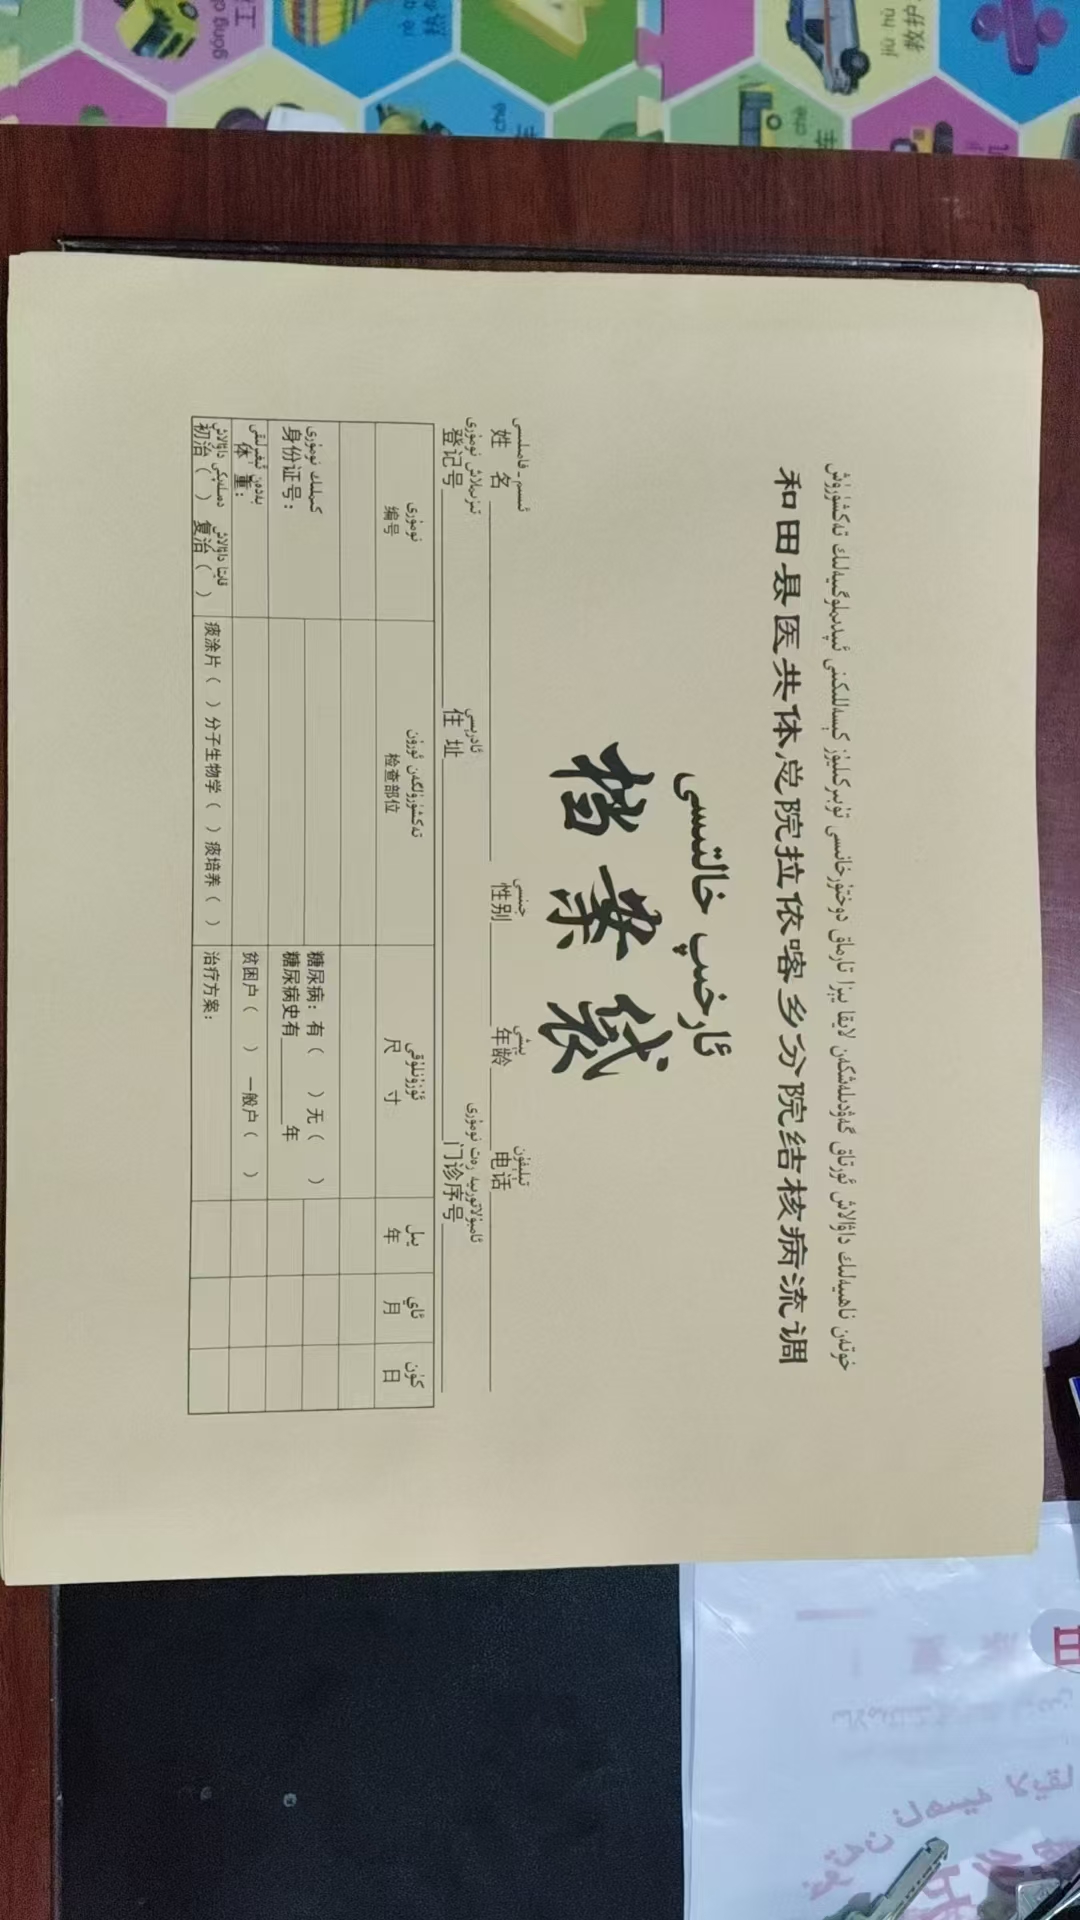 خوتەن ناھىيەلىك داۋالاش ئورتاق گەۋدىلەشكەن لايقا يېزا تارماق دوختۇرخانىسى تۇبېركىليوز كېسەللىكىنى ئېپىدېمىلوگىيەلىك تەكشۈرۈش
和田县医共体总院拉依喀乡分院结核病流调
ئارخىپ خالتىسى
档案袋
ئىسىم - فامىلىسى جىنسى يېشى تېلېفون
姓 名 性别 年龄 电话
تىزىملاش نومۇرى ئادرېسى ئامبۇلاتورىيە رەت نومۇرى
登记号 住 址 门诊序号
نومۇرى تەكشۈرۈلگەن ئورۇن ئۇزۇنلۇقى يىل ئاي كۈن
编号 检查部位 尺 寸 年 月 日
كىملىك نومۇرى
身份证号：
糖尿病：有（ ）无（ ）
糖尿病史有 年
بەدەن ئېغىرلىقى
体 重：
贫困户（ ） 一般户（ ）
دەسلەپكى داۋالاش قايتا داۋالاش
初治（ ） 复治（ ）
痰涂片（ ）分子生物学（ ）痰培养（ ）
治疗方案：